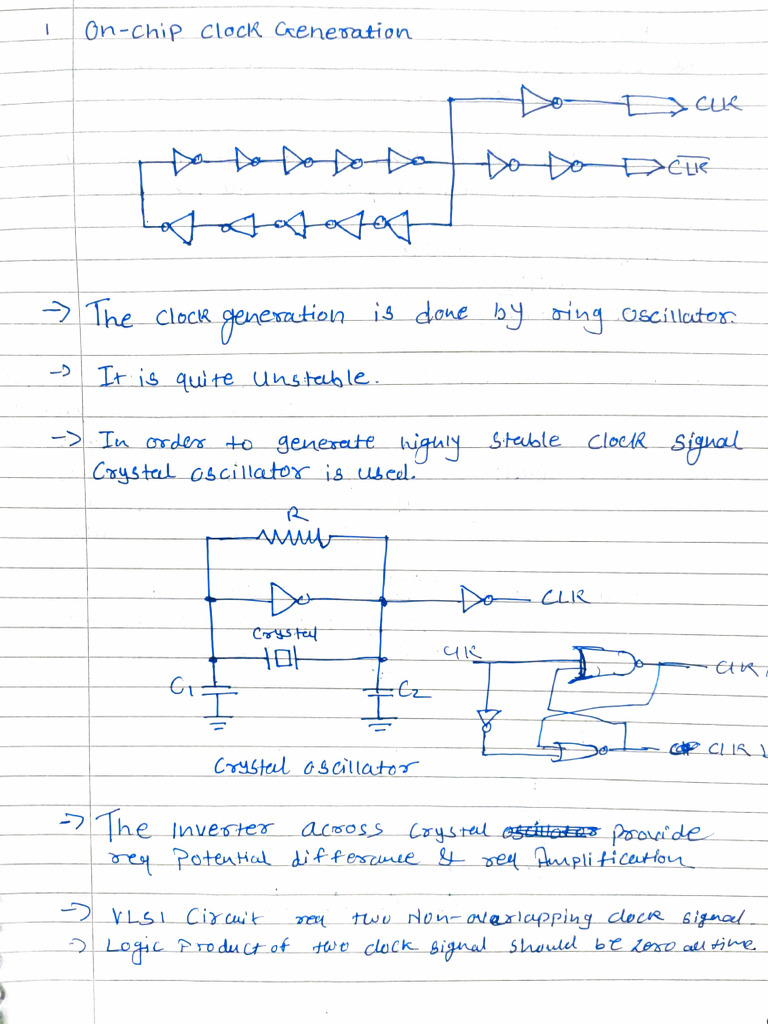 1 On-chip clock Generation
CLK
C̅L̅K̅
→ The clock generation is done by ring oscillator.
→ It is quite Unstable.
→ In order to generate highly stable clock signal
Crystal oscillator is used.
R
CLK
Crystal
CLK
CLK
C1
C2
CLK
Crystal oscillator
→ The inverter across crystal provide
req Potential difference & req Amplification
→ VLSI Circuit req two Non-overlapping clock signal.
→ Logic Product of two clock signal should be zero all time